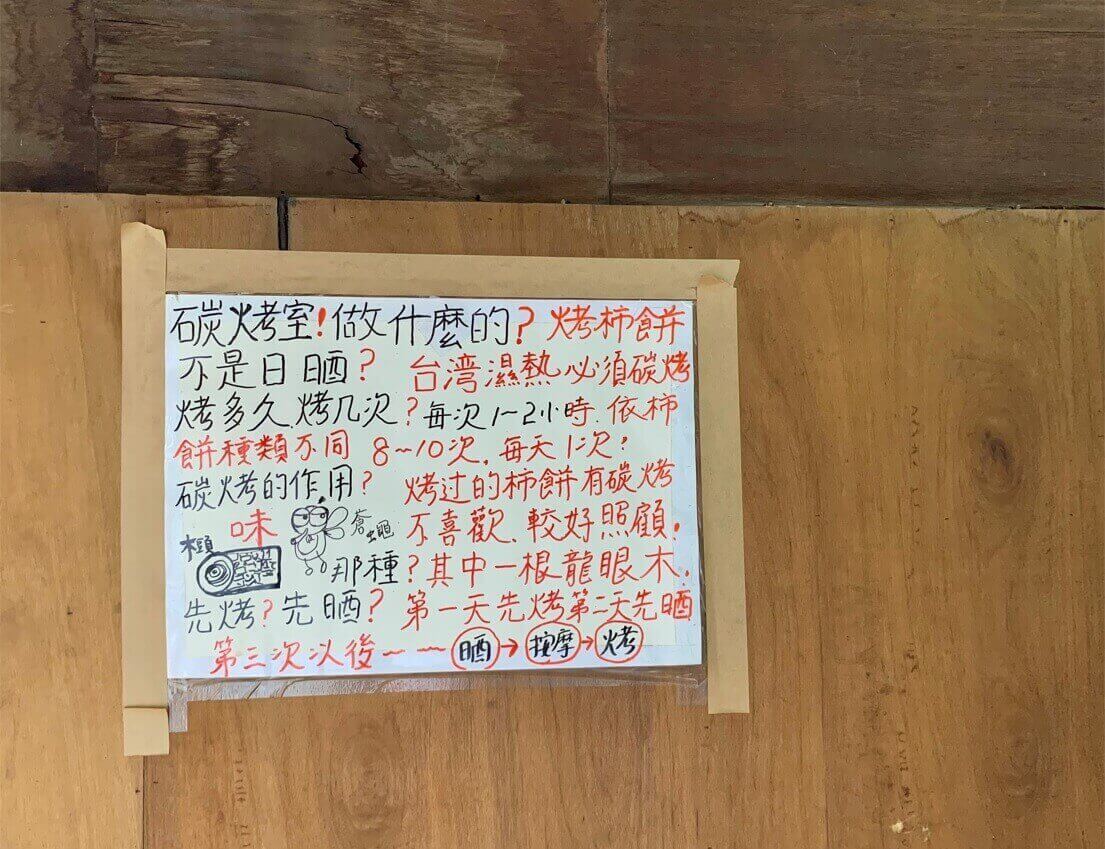 碳烤室!做什麼的?烤柿餅
不是日晒? 台湾濕熱必須碳烤
烤多久.烤几次?每次1~2小時.依柿
餅種類不同 8~10次.每天1次!
碳烤的作用? 烤过的柿餅有碳烤
味 蒼蠅 不喜歡.較好照顧.
木頭 那種?其中一根龍眼木.
先烤?先晒? 第一天先烤第二天先晒
第三次以後~~晒→按摩→烤